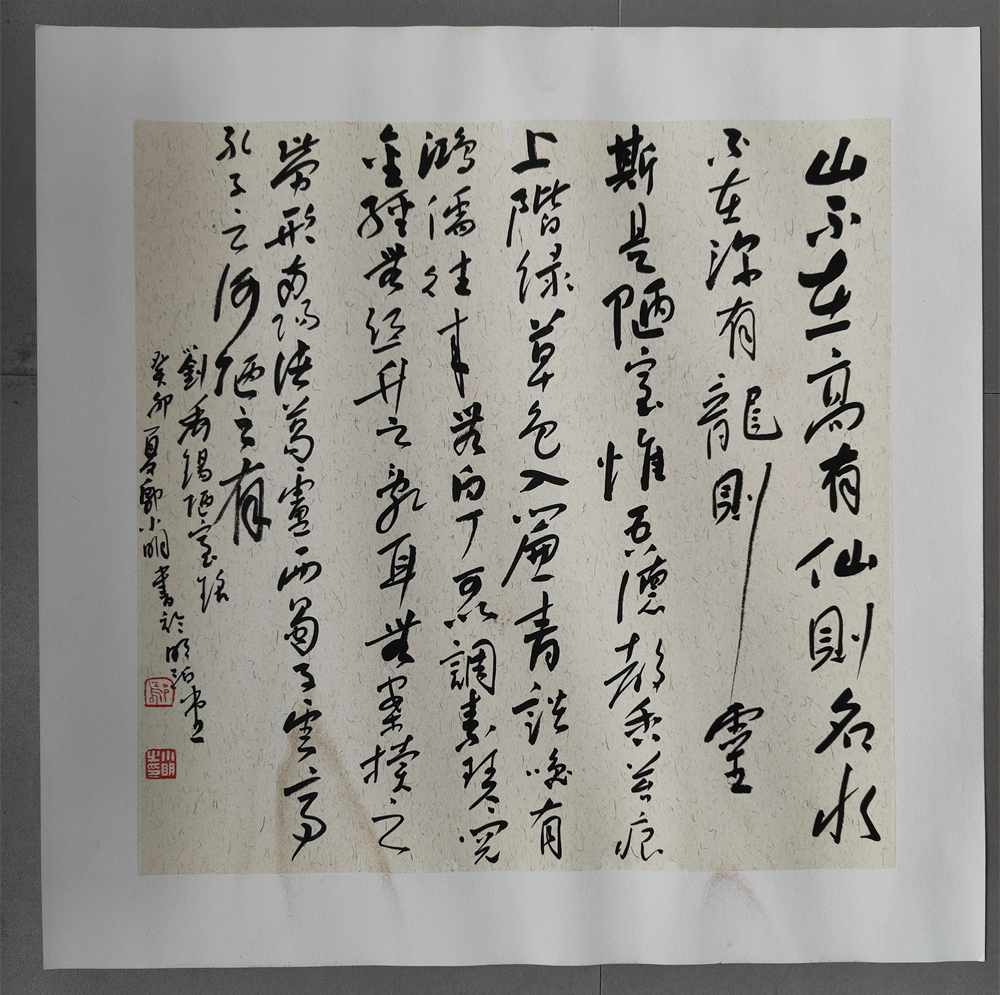 山不在高有仙則名水
不在深有龍則靈
斯是陋室惟吾德馨苔痕
上階綠草色入簾青談咲有
鴻儒往来無白丁可以調素琴閱
金經無絲竹之亂耳無案牘之
勞形南陽諸葛廬西蜀子雲亭
孔子云何陋之有
劉禹錫陋室銘
癸卯夏鄭小明書於明堂
鄭
小明之印